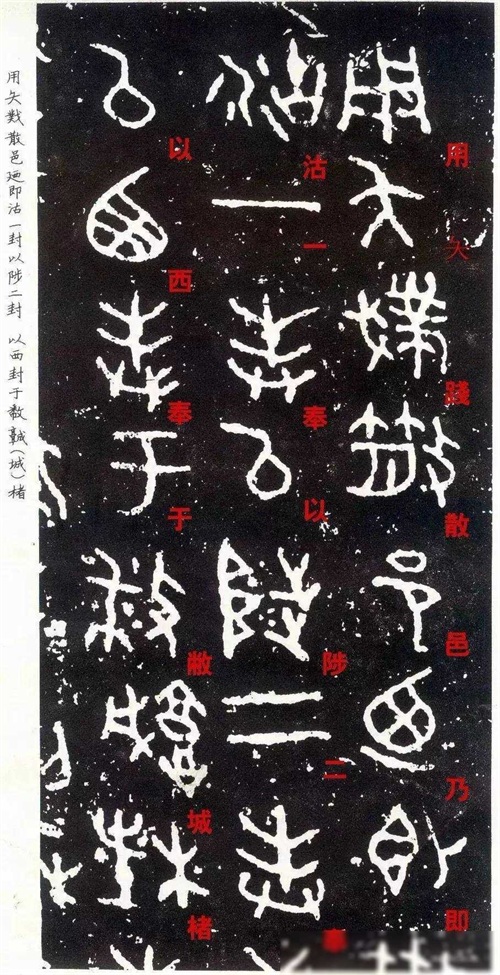 用矢踐散邑乃即
沽一奉以陟二奉
以西奉于敝城楮
用矢散邑廼即沽一封以陟二封 以西封于(城)楮